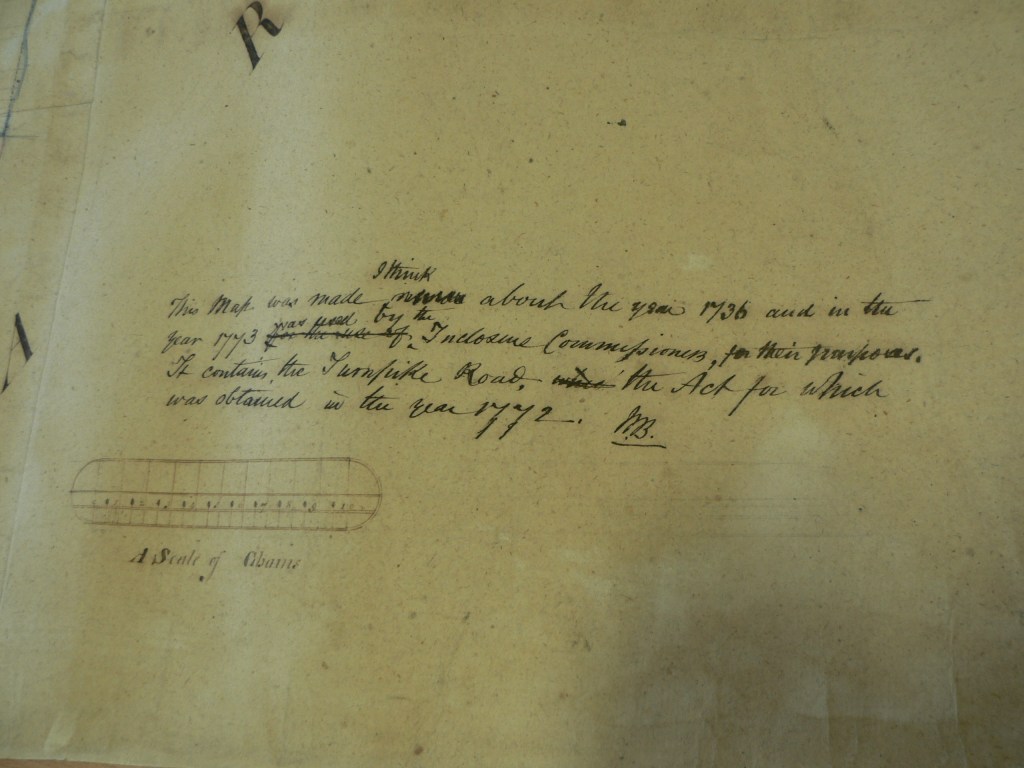 R
I think
This Map was made about the year 1736 and in the
was used by the
year 1773 for the use of, Inclosure Commissioners, for their purposes.
It contains the Turnpike Road, the Act for which
was obtained in the year 1772. W.B.
A Scale of Chains